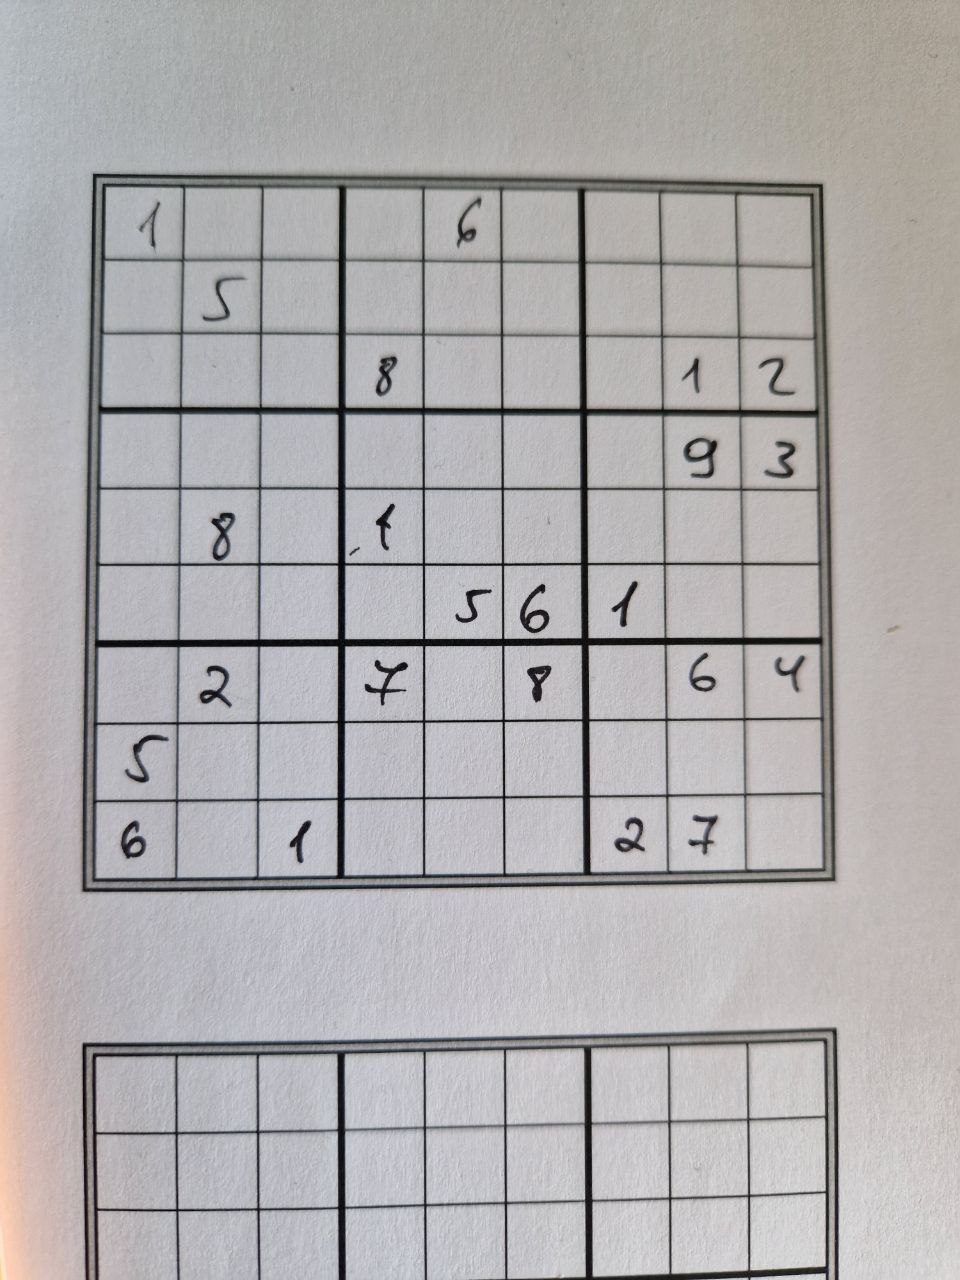 1 6
5
8 1 2
9 3
8 1
5 6 1
2 7 8 6 4
5
6 1 2 7